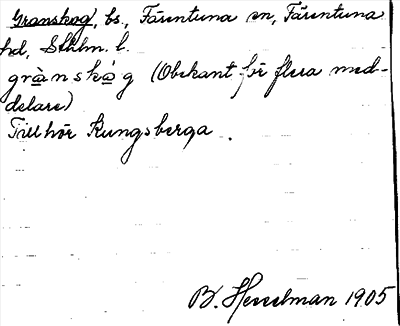 Granskog, bs., Färentuna sn, Färentuna
hd, Sthlm. l.
grànskȧ̀g (Obekant för flera med-
delare)
Tillhör Kungsberga.
B. Hesselman 1905